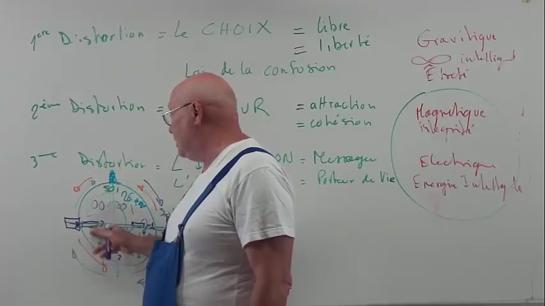 1ère Distortion = Le CHOIX = Libre
= liberté
Loi de la confusion
2ème Distortion = UR = attraction
= cohésion
3ème Distortion = L' ON = Messager
= Porteur de Vie
Gravitique
intelligent
Magnétique
intégrité
Electrique
Energie Intellig